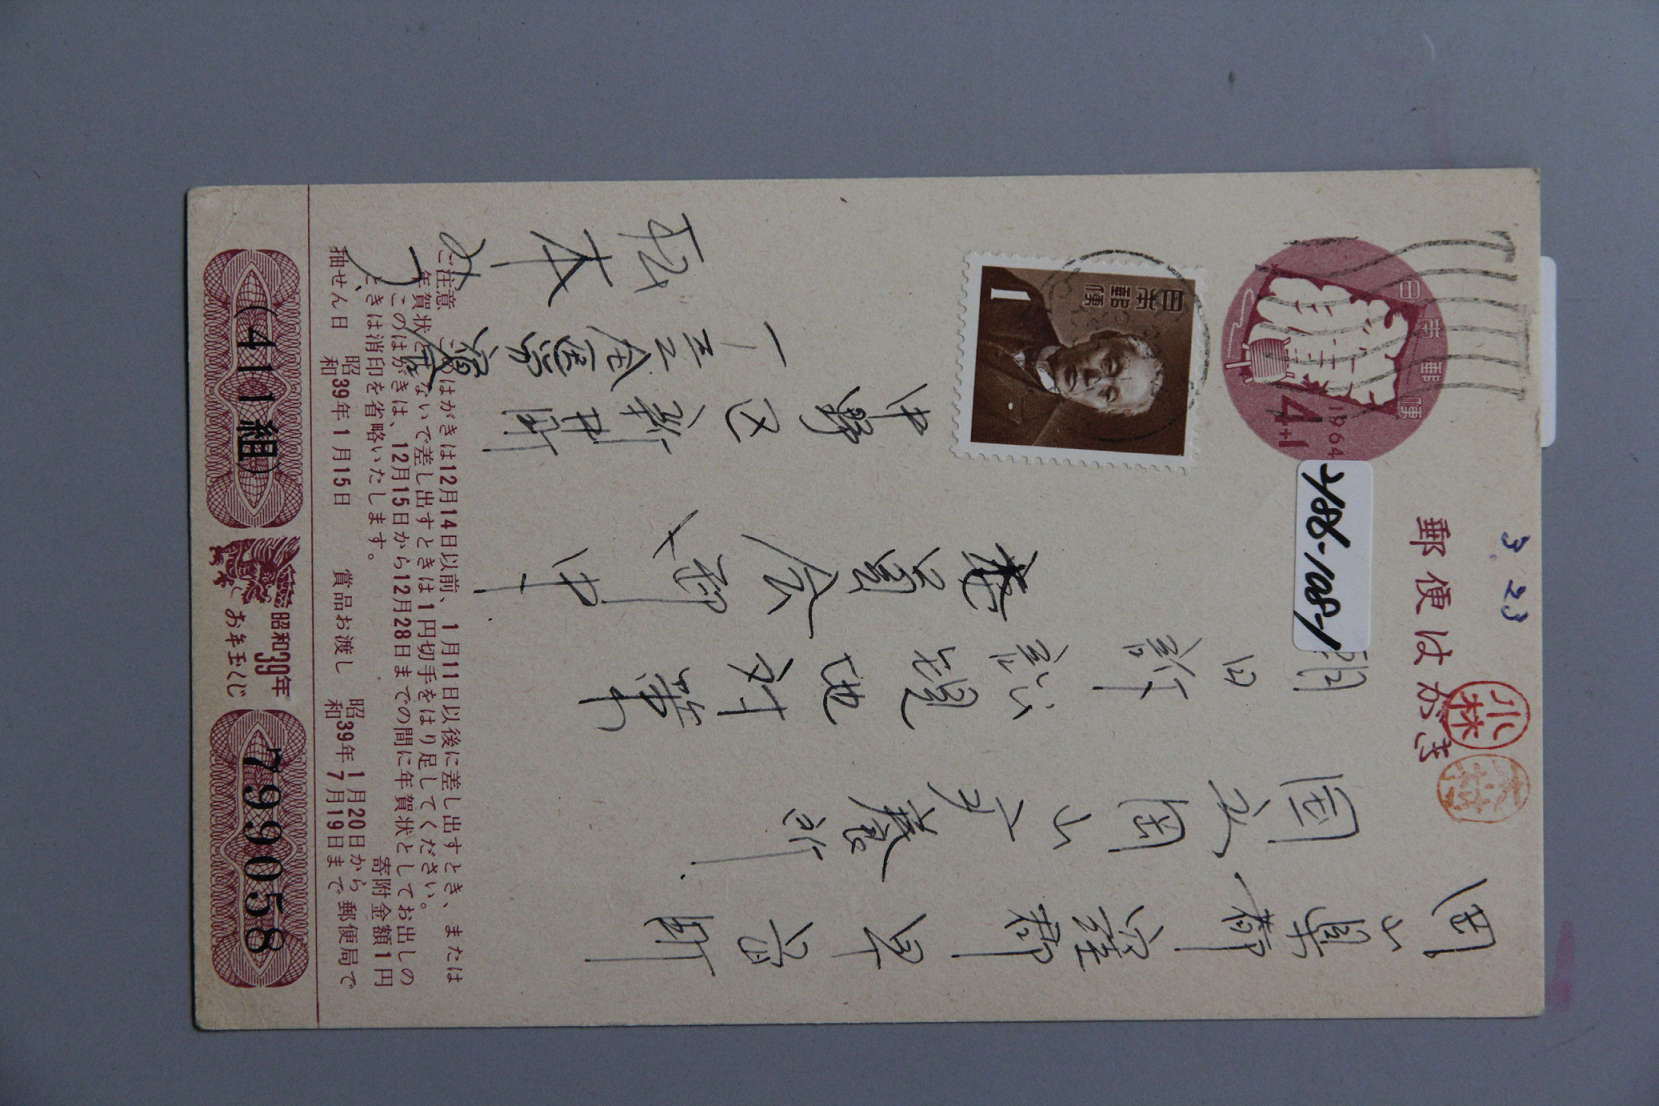 郵便はがき
日本郵便
1964
4+1
日本郵便
1
3.23
小林
2188-108-1
岡山県都窪郡早島町
国立岡山療養所
朝日訴訟対
委員会 御中
中野区新井町
一ノ三三
ご注意 このはがきは12月14日以前、1月11日以後に差し出すとき、または
年賀状としないで差し出すときは1円切手をはり足してください。
このはがきは、12月15日から12月28日までの間に年賀状としてお出しの
ときは消印を省略いたします。
寄附金額1円
抽せん日 昭和39年1月15日 賞品お渡し 昭和39年1月20日から7月19日まで郵便局で
(411組)
昭和39年
お年玉くじ
799058